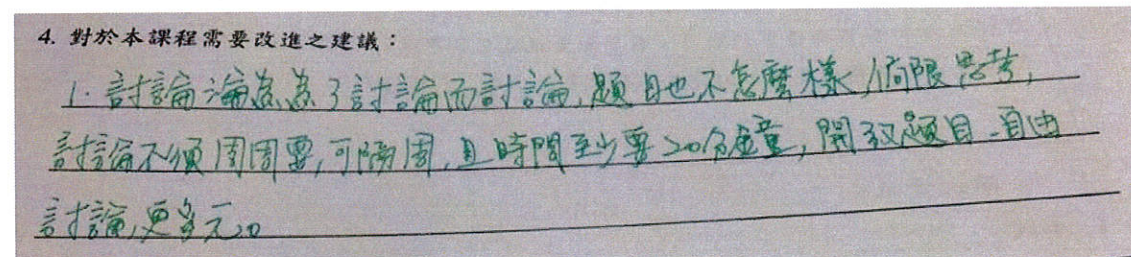 4. 對於本課程需要改進之建議：
1. 討論淪為為了討論而討論,題目也不怎麼樣,侷限思考,
討論不須周周要,可隔周,且時間至少要20分鐘,開放題目,自由
討論,更多元。